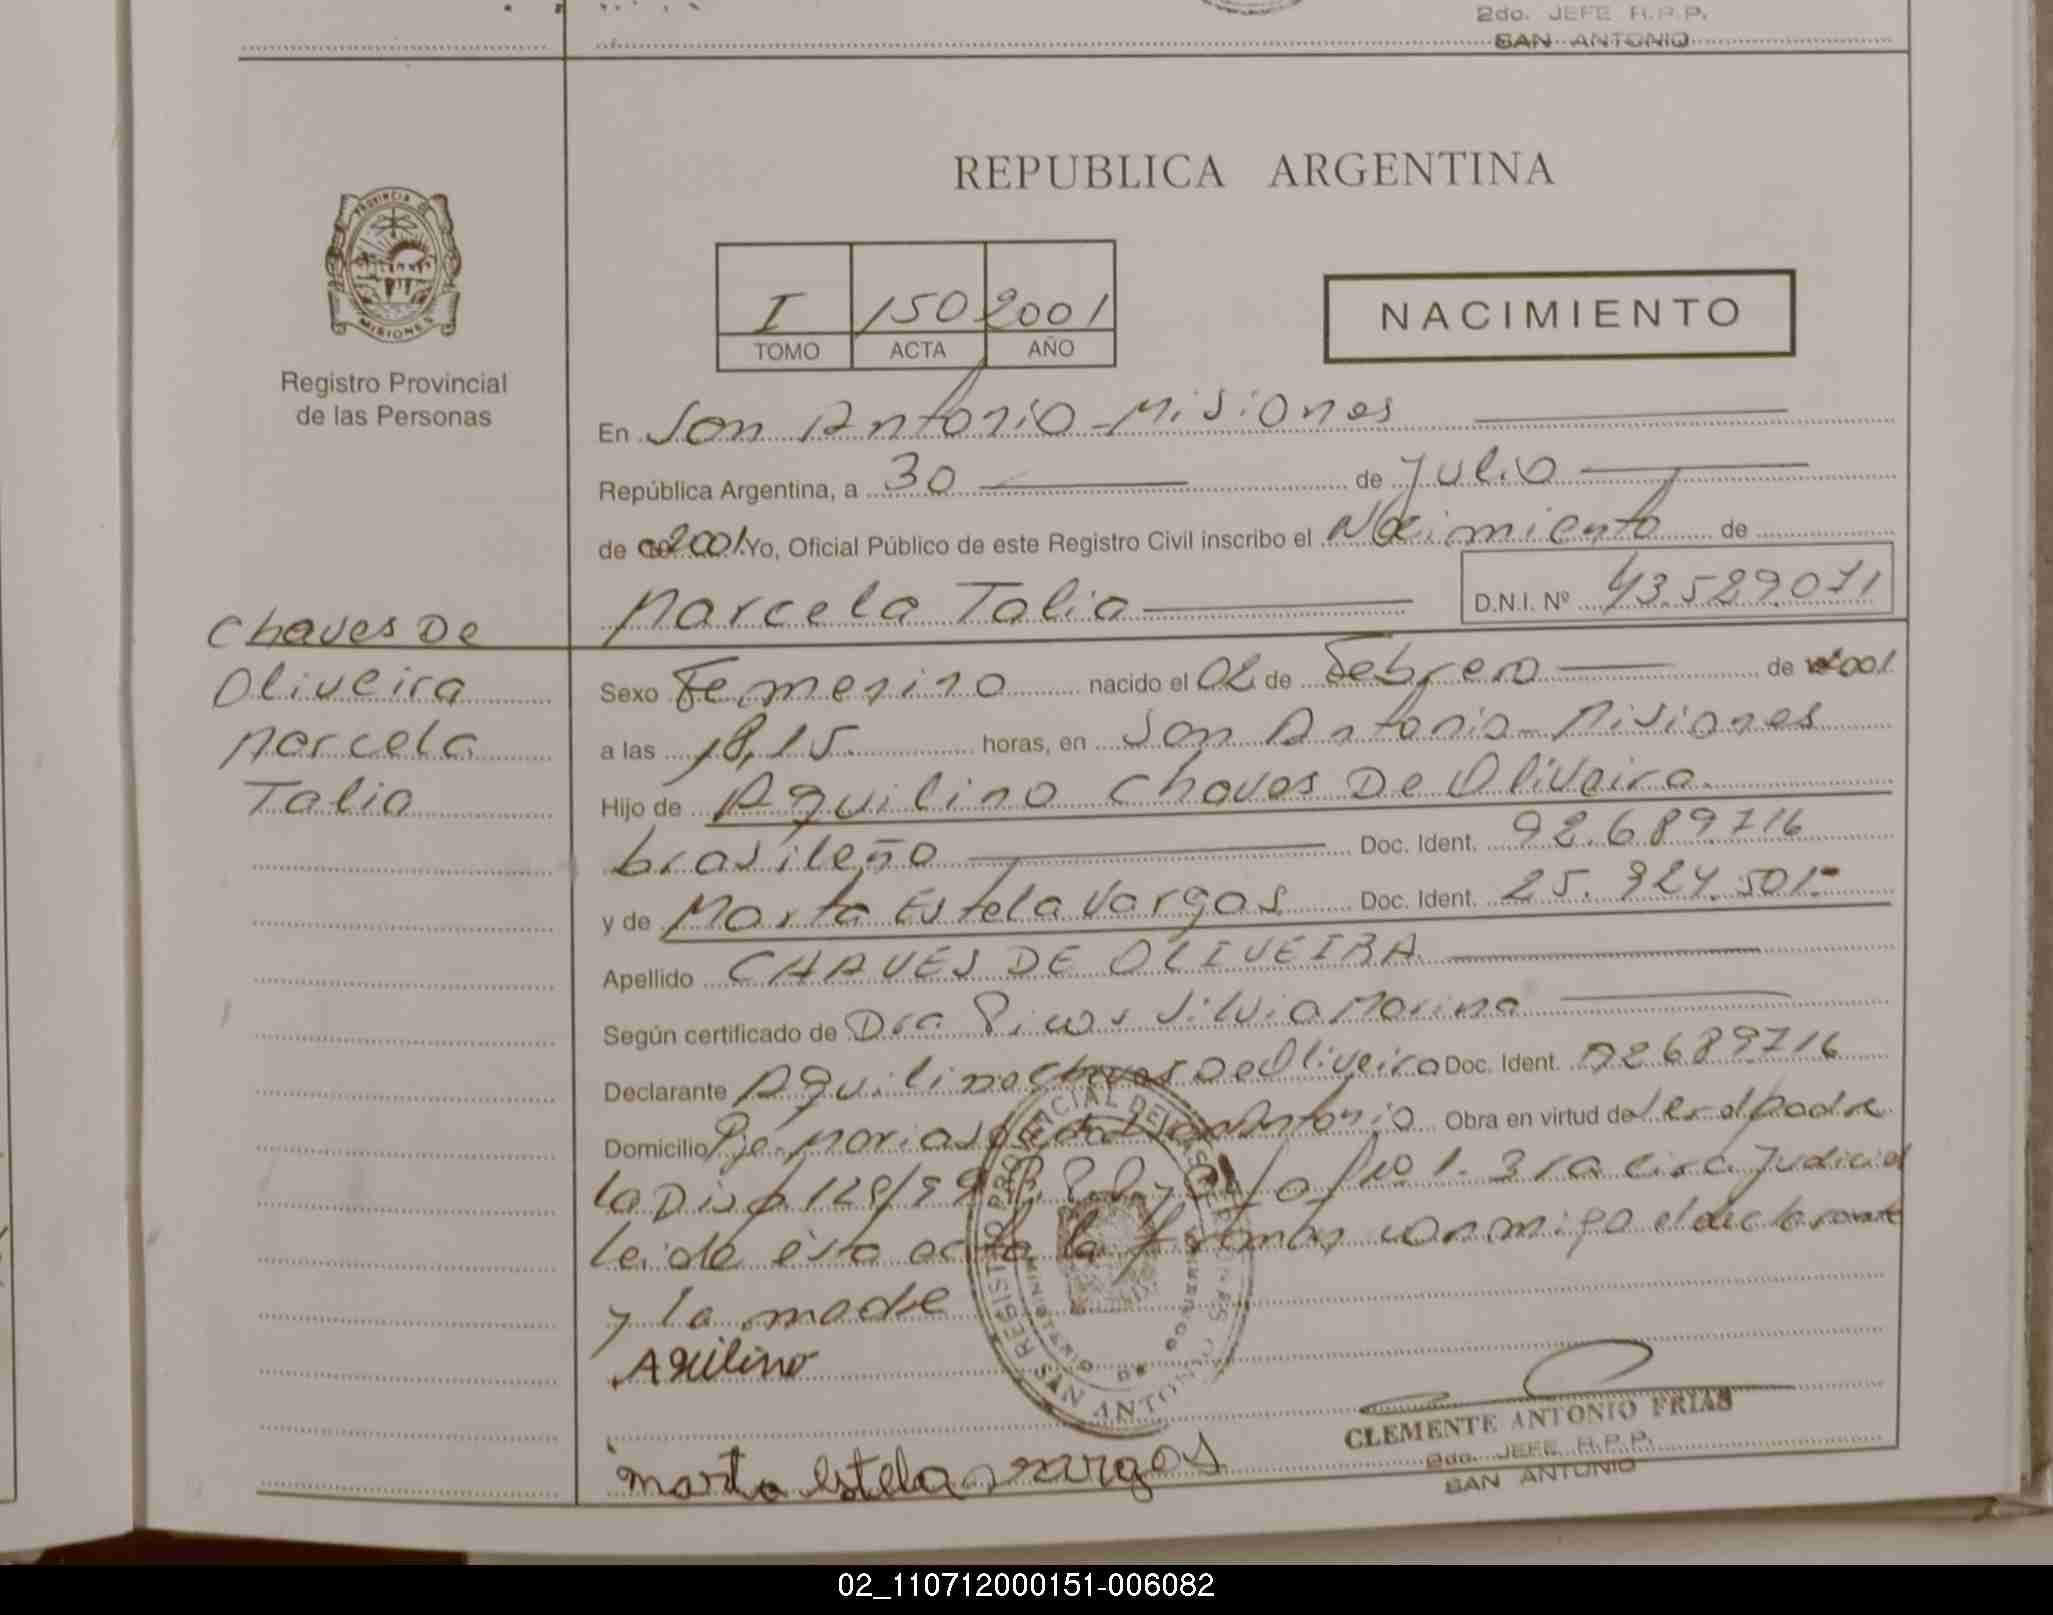 2do. JEFE R.P.P.
SAN ANTONIO
REPUBLICA ARGENTINA
PROVINCIA DE
MISIONES
Registro Provincial
de las Personas
I 150 2001
TOMO ACTA AÑO
NACIMIENTO
En San Antonio - Misiones
República Argentina, a 30 de Julio
de 2001 Yo, Oficial Público de este Registro Civil inscribo el Nacimiento de
Marcela Talia D.N.I. Nº 43.529.071
Chaves De
Oliveira
Marcela
Talia
Sexo Femenino nacido el 02 de Febrero de 2001
a las 18,15 horas, en San Antonio Misiones
Hijo de Aquilino Chaves De Oliveira
brasileño Doc. Ident. 92.689.716
y de Marta Estela Vargas Doc. Ident. 25.924.501.-
Apellido CHAVES DE OLIVEIRA
Según certificado de Dra Silvia Marina
Declarante Aquilino Chaves De Oliveira Doc. Ident. 92689716
Domicilio San Antonio Obra en virtud de ser el padre
la Disp 128/99 1. 3ra circ. Judicial
leida ésta acta la firman conmigo el declarante
y la madre
Aquilino
REGISTRO PROVINCIAL DE LAS PERSONAS
SAN ANTONIO
CLEMENTE ANTONIO FRIAS
2do. JEFE R.P.P.
SAN ANTONIO
marta estela vargas
02_110712000151-006082